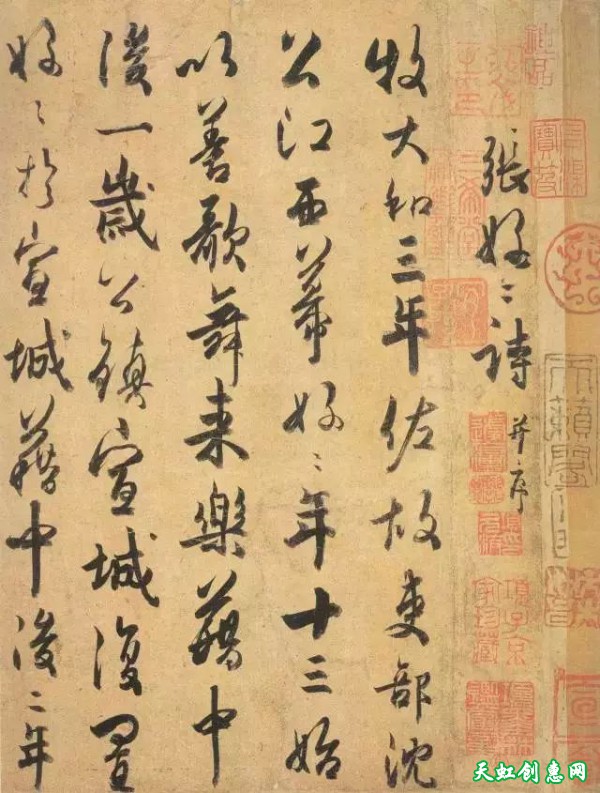 天籟閣
項子京
家珍藏
張好〻詩 并序
牧大和三年佐故吏部沈
公江西幕好〻年十三始
以善歌舞来樂籍中
後一歲公鎮宣城復置
好〻於宣城籍中後二年
天虹创惠网